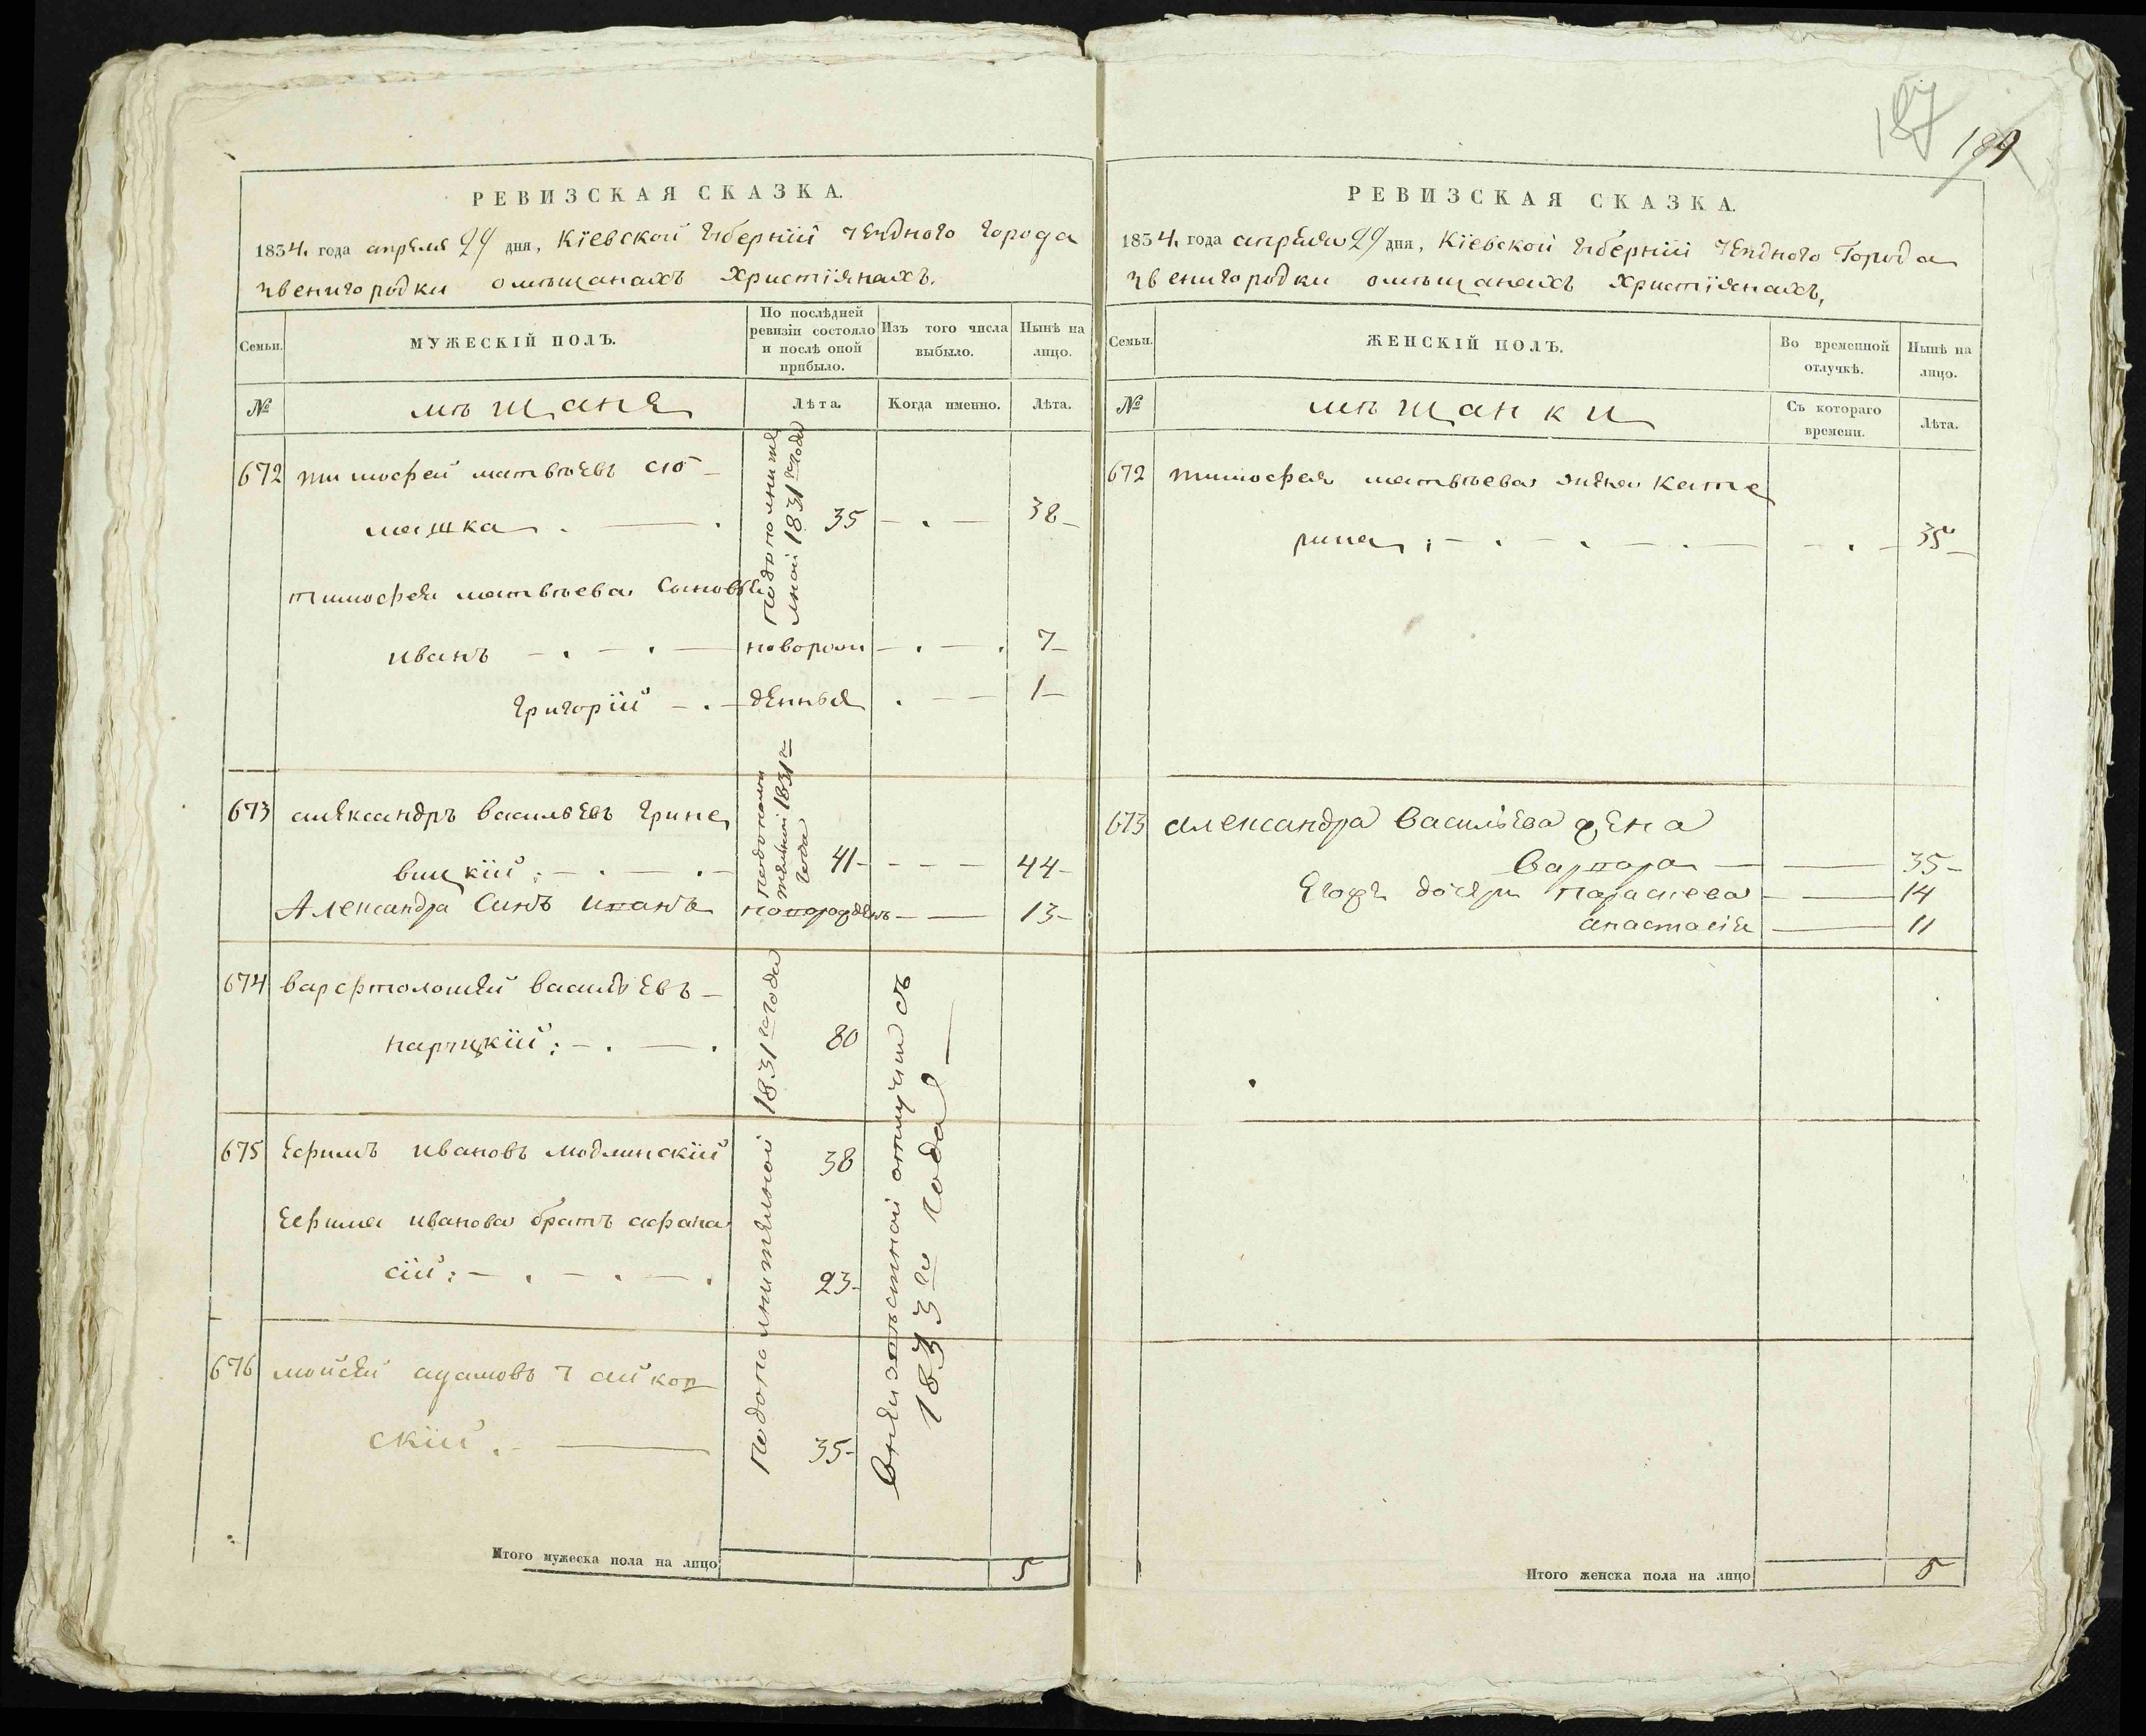 187 189
РЕВИЗСКАЯ СКАЗКА.
1834. года апреля 29 дня, Кіевской губерніи уезднаго города
звенигородки о мѣщанахъ христіянахъ.
Семьи. МУЖЕСКІЙ ПОЛЪ. По послѣдней ревизіи состояло и послѣ оной прибыло. Изъ того числа выбыло. Нынѣ на лицо.
№ мѣщане Лѣта. Когда именно. Лѣта.
672 тимофей матвѣевъ
машка 35 38
по дополните
льной 1831 года
тимофея матвѣева сыновья
иванъ новорож 7
григорій денныя 1
673 александръ васильевъ грине
вицкій 41 44
по дополни
тельной 1831
года
Александра синъ иванъ новорожденъ 13
674 варфтоломей васильевъ
80
675 ефимъ ивановъ модлинскій 38
ефима иванова братъ афана
сій: 23
676 мойсей адамовъ
скій 35
по дополнительной 1831 года
отлучитъ
1833 года
Итого мужеска пола на лицо 5
РЕВИЗСКАЯ СКАЗКА.
1834. года апреля 29 дня, Кіевской губерніи уезднаго Города
звенигородки о мѣщанахъ христіянахъ,
Семьи. ЖЕНСКІЙ ПОЛЪ. Во временной отлучкѣ. Нынѣ на лицо.
№ мѣщанки Съ котораго времени. Лѣта.
672 тимофея матвѣева жена кате
рина 35
673 александра василіева жена
варвара 35
егожъ дочери параскева 14
анастасія 11
Итого женска пола на лицо 5